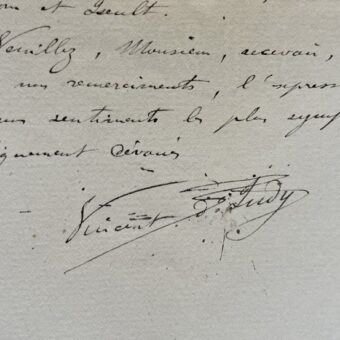 et Iseult.
Veuillez, Monsieur, recevoir,
nos remerciments, l'express
sentiments les plus symp
dévoués
Vincent d'Indy